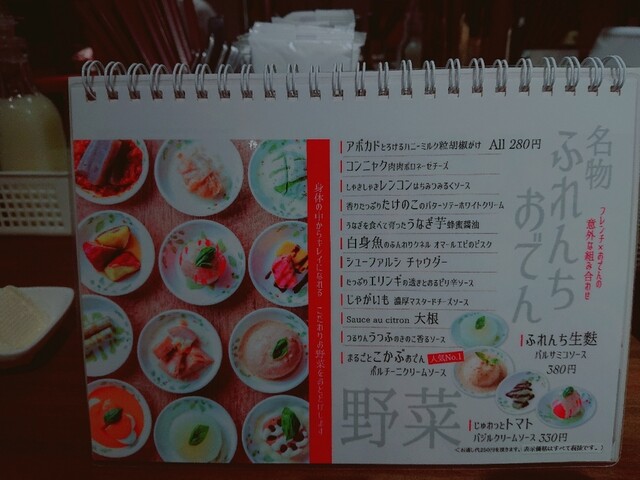 名物
ふれんち
おでん
フレンチ×おでんの
意外な組み合わせ
身体の中からキレイになれる こだわりお野菜をお出汁で
アボカド とろけるハニーミルク粒胡椒がけ All 280円
コンニャク 肉肉ボロネーゼチーズ
しゃきしゃきレンコン はちみつみるくソース
香りたっぷりたけのこのバターソテーホワイトクリーム
うなぎを食べて育ったうなぎ芋 蜂蜜醤油
白身魚のふんわりクネル オマールエビのビスク
シューファルシ チャウダー
たっぷりエリンギの透きとおるピリ辛ソース
じゃがいも 濃厚マスタードチーズソース
Sauce au citron 大根
つるりんうつふのきのこ香るソース
まるごとこかぶおでん 人気No.1
ポルチーニクリームソース
野菜
ふれんち生麩
バルサミコソース
380円
じゅわっとトマト
バジルクリームソース 330円